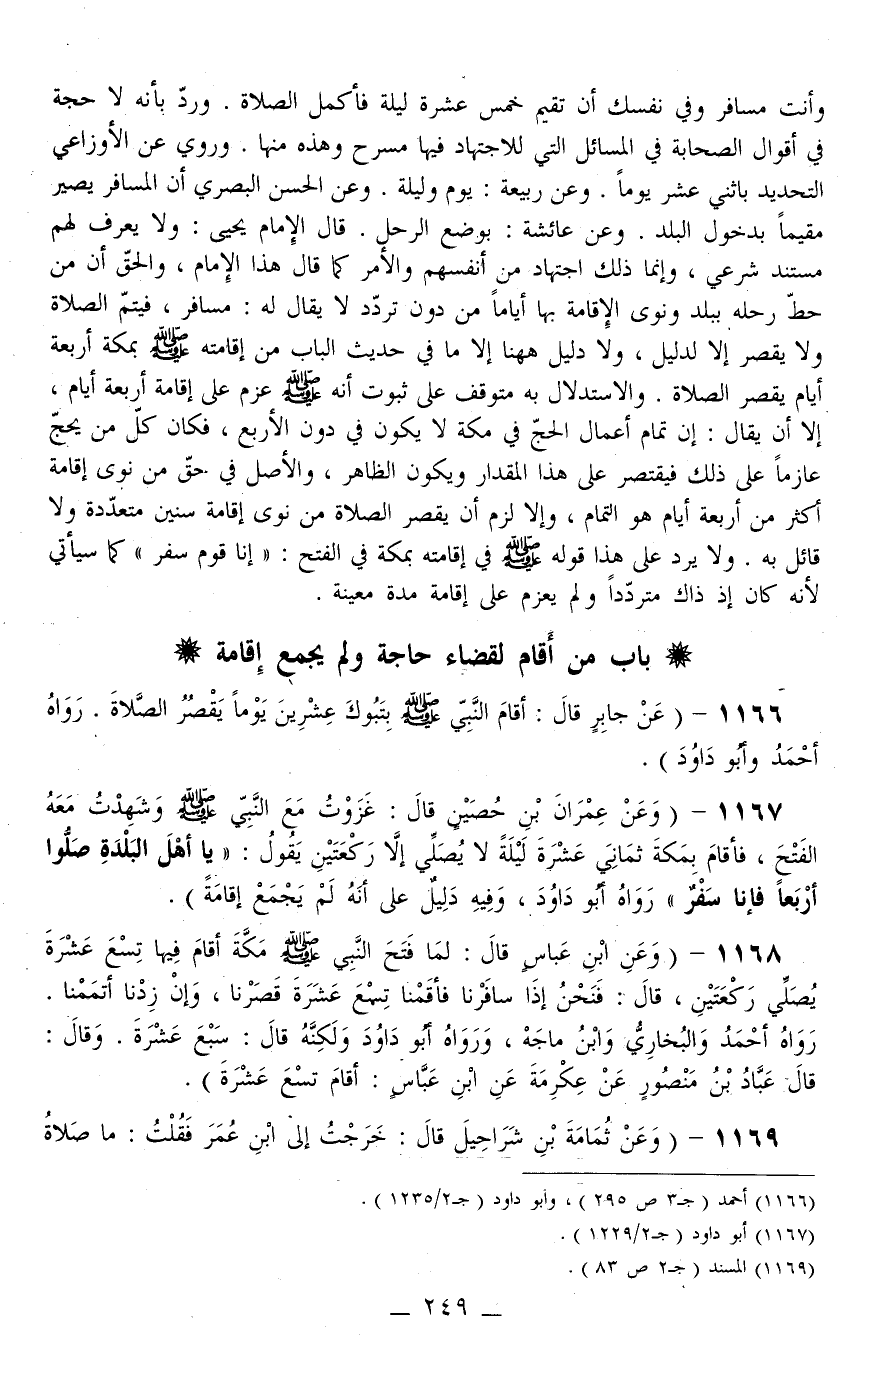 وأنت مسافر وفي نفسك أن تقيم خمس عشرة ليلة فأكمل الصلاة . وردّ بأنه لا حجة
في أقوال الصحابة في المسائل التي للاجتهاد فيها مسرح وهذه منها . وروي عن الأوزاعي
التحديد باثني عشر يوماً . وعن ربيعة : يوم وليلة . وعن الحسن البصري أن المسافر يصير
مقيماً بدخول البلد . وعن عائشة : بوضع الرحل . قال الإمام يحيى : ولا يعرف لهم
مستند شرعي ، وإنما ذلك اجتهاد من أنفسهم والأمر كما قال هذا الإمام ، والحقّ أن من
حطّ رحله ببلد ونوى الإقامة بها أياماً من دون تردّد لا يقال له : مسافر ، فيتمّ الصلاة
ولا يقصر إلا لدليل ، ولا دليل ههنا إلا ما في حديث الباب من إقامته ﷺ بمكة أربعة
أيام يقصر الصلاة . والاستدلال به متوقف على ثبوت أنه ﷺ عزم على إقامة أربعة أيام ،
إلا أن يقال : إن تمام أعمال الحجّ في مكة لا يكون في دون الأربع ، فكان كلّ من يحجّ
عازماً على ذلك فيقتصر على هذا المقدار ويكون الظاهر ، والأصل في حقّ من نوى إقامة
أكثر من أربعة أيام هو التمام ، وإلا لزم أن يقصر الصلاة من نوى إقامة سنين متعدّدة ولا
قائل به . ولا يرد على هذا قوله ﷺ في إقامته بمكة في الفتح : « إنا قوم سفر » كما سيأتي
لأنه كان إذ ذاك متردّداً ولم يعزم على إقامة مدة معينة .
❋ باب من أَقام لقضاء حاجة ولم يجمع إِقامة ❋
١١٦٦ – ( عَنْ جابِرٍ قالَ : أقامَ النَّبِيّ ﷺ بِتَبُوكَ عِشْرِينَ يَوْماً يَقْصُرُ الصَّلاةَ . رَوَاهُ
أحْمَدُ وأبُو دَاوُدَ ) .
١١٦٧ – ( وَعَنْ عِمْرَانَ بْنِ حُصَيْنٍ قالَ : غَزَوْتُ مَعَ النَّبِيّ ﷺ وَشَهِدْتُ مَعَهُ
الفَتْحَ ، فأقامَ بِمَكةَ ثمَانِيَ عَشْرَةَ لَيْلَةً لا يُصَلِّي إلَّا رَكْعَتَيْنِ يَقُولُ : « يا أهْلَ البَلْدَةِ صَلُّوا
أرْبَعاً فإنا سَفْرٌ » رَوَاهُ أبُو دَاوُدَ ، وَفِيهِ دَلِيلٌ على أنَهُ لَمْ يَجْمَعْ إقامَةً ) .
١١٦٨ – ( وَعَنِ ابْنِ عَباسٍ قالَ : لمَا فَتَحَ النَّبِي ﷺ مَكَّةَ أقامَ فِيها تِسْعَ عَشْرَةَ
يُصَلِّي رَكْعَتَيْنِ ، قالَ : فَنَحْنُ إذَا سافَرْنا فأقَمْنا تِسْعَ عَشَرَةَ قَصَرْنا ، وَإنْ زِدْنا أتمَمْنا .
رَوَاهُ أحْمَدُ وَالبُخارِيُّ وَابْنُ ماجَهْ ، وَرَوَاهُ أبُو دَاوُدَ وَلَكِنَّهُ قالَ : سَبْعَ عَشْرَةَ . وَقالَ :
قالَ عَبَّادُ بْنُ مَنْصُورٍ عَنْ عِكْرِمَةَ عَنِ ابْنِ عَبَّاسٍ : أقامَ تسْعَ عَشْرَةَ ) .
١١٦٩ – ( وَعَنْ ثُمَامَةَ بْنِ شَرَاحِيلَ قالَ : خَرَجْتُ إلى ابْنِ عُمَرَ فَقُلْتُ : ما صَلاةُ
(١١٦٦) أحمد ( جـ٣ ص ٢٩٥ ) ، وأبو داود ( جـ١٢٣٥/٢ ) .
(١١٦٧) أبو داود ( جـ١٢٢٩/٢ ) .
(١١٦٩) المسند ( جـ٢ ص ٨٣ ) .
— ٢٤٩ —